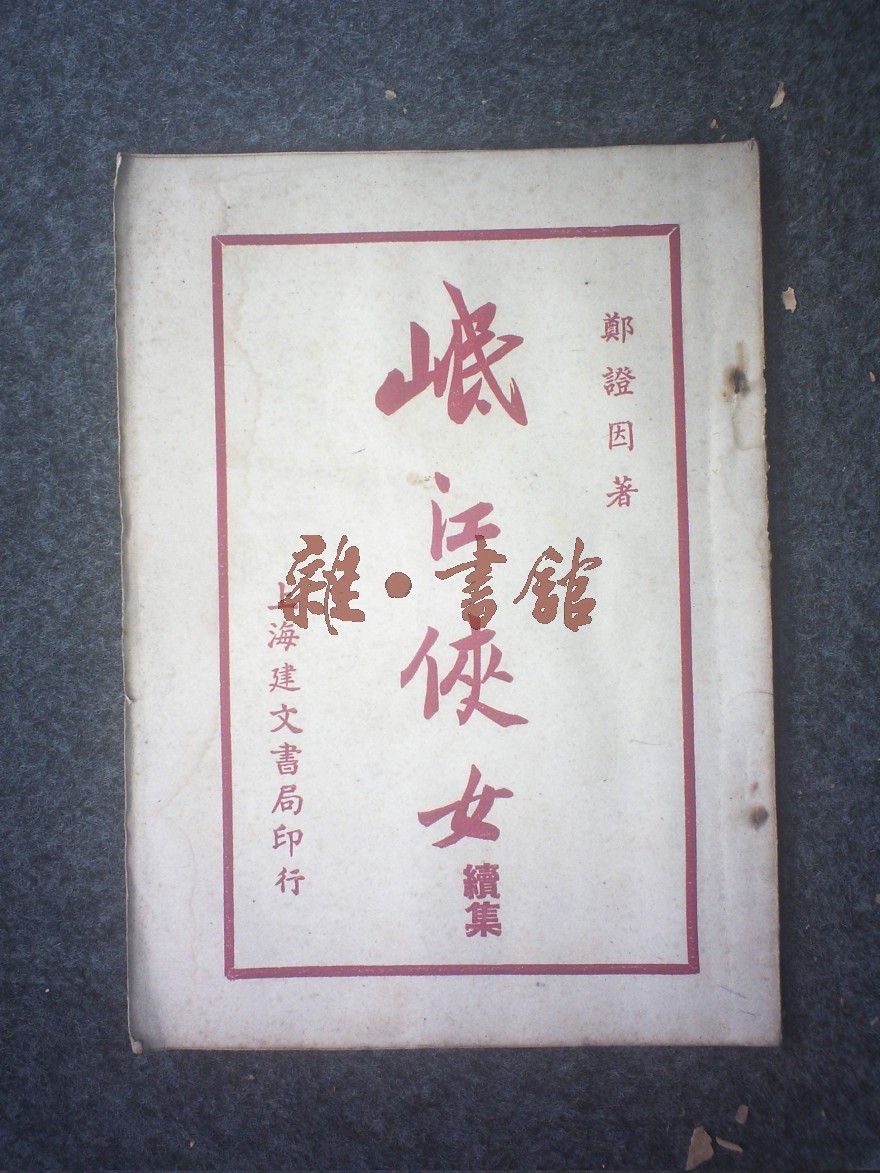 鄭證因著
岷江俠女
續集
上海建文書局印行
雜·書館